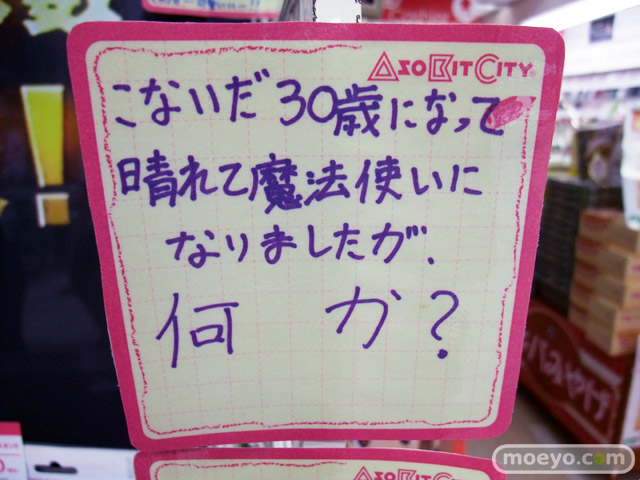 ASOBITCITY
こないだ30歳になって
晴れて魔法使いに
なりましたが.
何か?
ASOBITCITY
moeyo.com